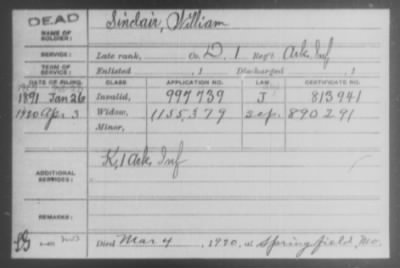 DEAD
NAME OF SOLDIER: Sinclair, William
SERVICE: Late rank, Co. D, 1 Reg't Ark. Inf
TERM OF SERVICE: Enlisted , 1 Discharged , 1
DATE OF FILING. CLASS APPLICATION NO. LAW. CERTIFICATE NO.
1891 Jan 26 Invalid, 997739 J 813941
1920 Apr 3 Widow, 1155,379 sep. 890291
Minor,
ADDITIONAL SERVICES: K, 1 Ark. Inf
REMARKS:
Died Mar 4, 1920, at Springfield, Mo.